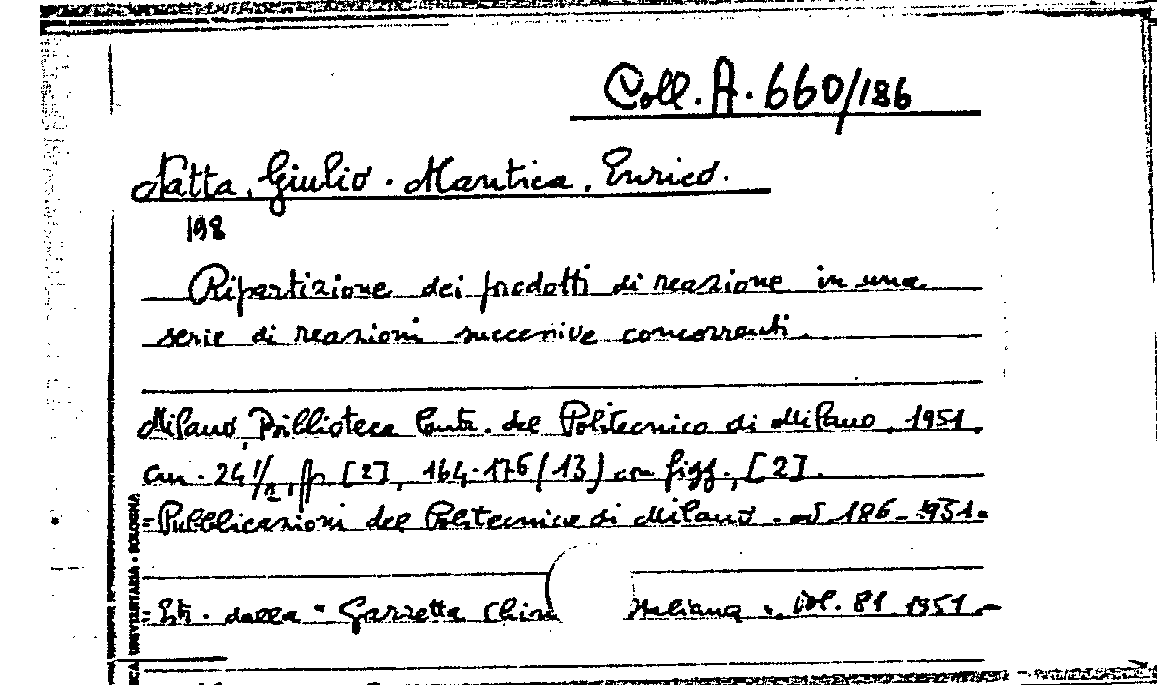 Coll. A. 660/186
Natta, Giulio. Mantica, Enrico.
198
Ripartizione dei prodotti di reazione in una
serie di reazioni successive concorrenti.
Milano, Biblioteca Centr. del Politecnico di Milano, 1951.
cm. 24 1/2, pp [2], 164-176 (13) con figg., [2].
= Pubblicazioni del Politecnico di Milano. n° 186 - 1951.
= Estr. dalla " Gazzetta Chim Italiana ". Vol. 81 1951. -
UNIVERSITARIA - BOLOGNA